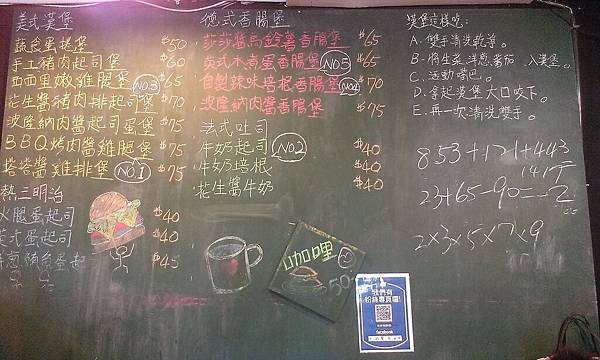 美式漢堡
蔬食蛋捲堡 $50
手工豬肉起司堡 $60
西西里嫩雞腿堡 NO.3 $65
花生醬豬肉排起司堡 $70
波隆納肉醬起司蛋堡 $75
BBQ烤肉醬雞腿堡 $75
塔塔醬雞排堡 NO.1 $75
熱三明治
火腿蛋起司 $40
英式蛋起司 $40
洋蔥鮪魚蛋起 $45
德式香腸堡
莎莎醬馬鈴薯香腸堡 $65
英式水煮蛋香腸堡 NO.5 $65
自製辣味培根香腸堡 NO.4 $70
波隆納肉醬香腸堡 $75
法式吐司
牛奶起司 NO.2 $40
牛奶培根 $40
花生醬牛奶 $40
咖哩
50
漢堡這樣吃:
A.雙手清洗乾淨。
B.將生菜.洋蔥.番茄.入漢堡。
C.活動嘴巴。
D.拿起漢堡大口咬下。
E.再一次清洗雙手。
853+121+443
1417
23+65-90=-2
2×3×5×7×9
我們有
粉絲專頁囉!
facebook